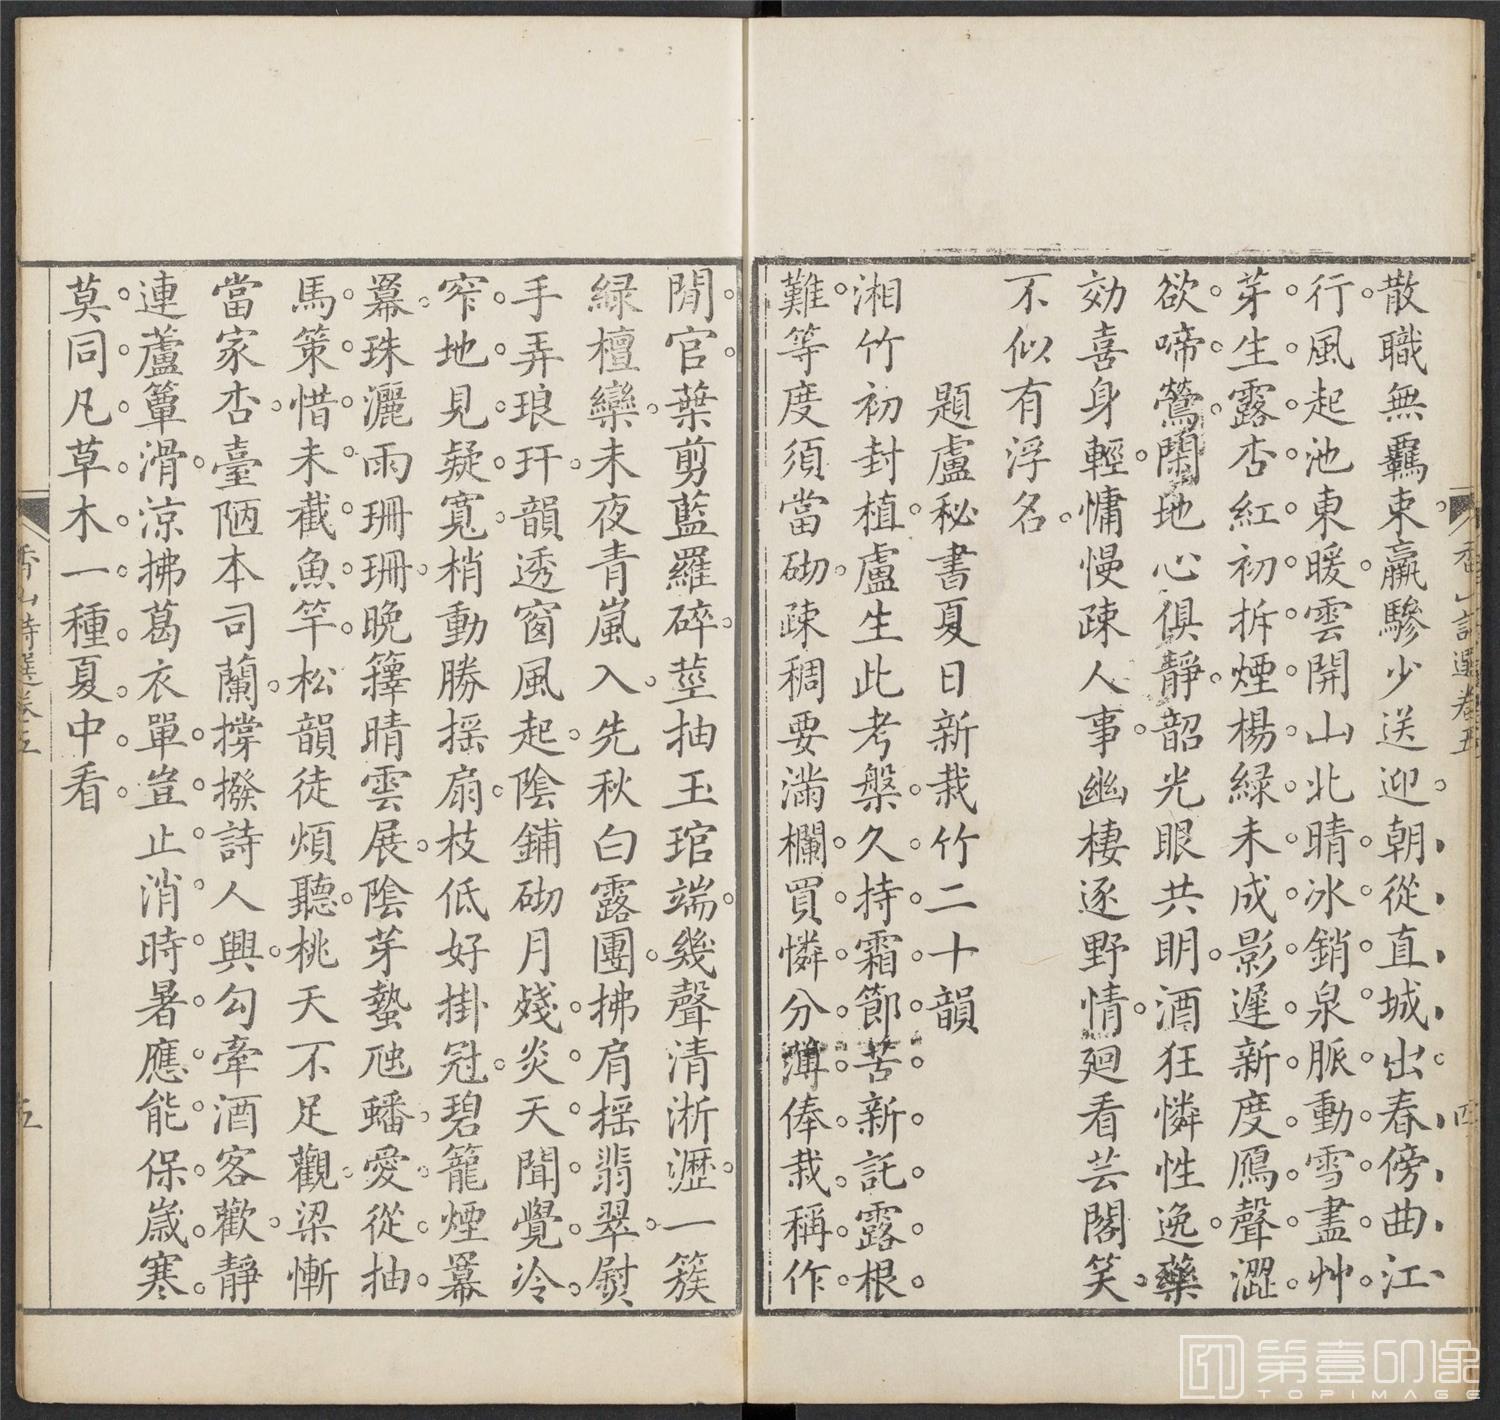 散職無羈束羸驂少送迎朝從直城出春傍曲江
行風起池東暖雲開山北晴冰銷泉脈動雪盡艸
芽生露杏紅初拆煙楊綠未成影遲新度鴈聲澀
欲啼鶯閑地心俱靜韶光眼共明酒狂憐性逸藥
効喜身輕慵慢疎人事幽棲逐野情廻看芸閣笑
不似有浮名
題盧秘書夏日新栽竹二十韻
湘竹初封植盧生此考槃久持霜節苦新託露根
難等度須當砌疎稠要滿欄買憐分薄俸栽稱作
閒官葉剪藍羅碎莖抽玉琯端幾聲清淅瀝一簇
綠檀欒未夜青嵐入先秋白露團拂肩搖翡翠熨
手弄琅玕韻透窗風起陰鋪砌月殘炎天聞覺冷
窄地見疑寬梢動勝搖扇枝低好掛冠碧籠煙羃
羃珠灑雨珊珊晚籜晴雲展陰芽蟄虺蟠愛從抽
馬策惜未截魚竿松韻徒煩聽桃夭不足觀梁慚
當家杏臺陋本司蘭撐撥詩人興勾牽酒客歡靜
連蘆簟滑涼拂葛衣單豈止消時暑應能保歲寒
莫同凡草木一種夏中看
香山詩選卷五
四
香山詩選卷五
五
第壹印像
TOPIMAGE